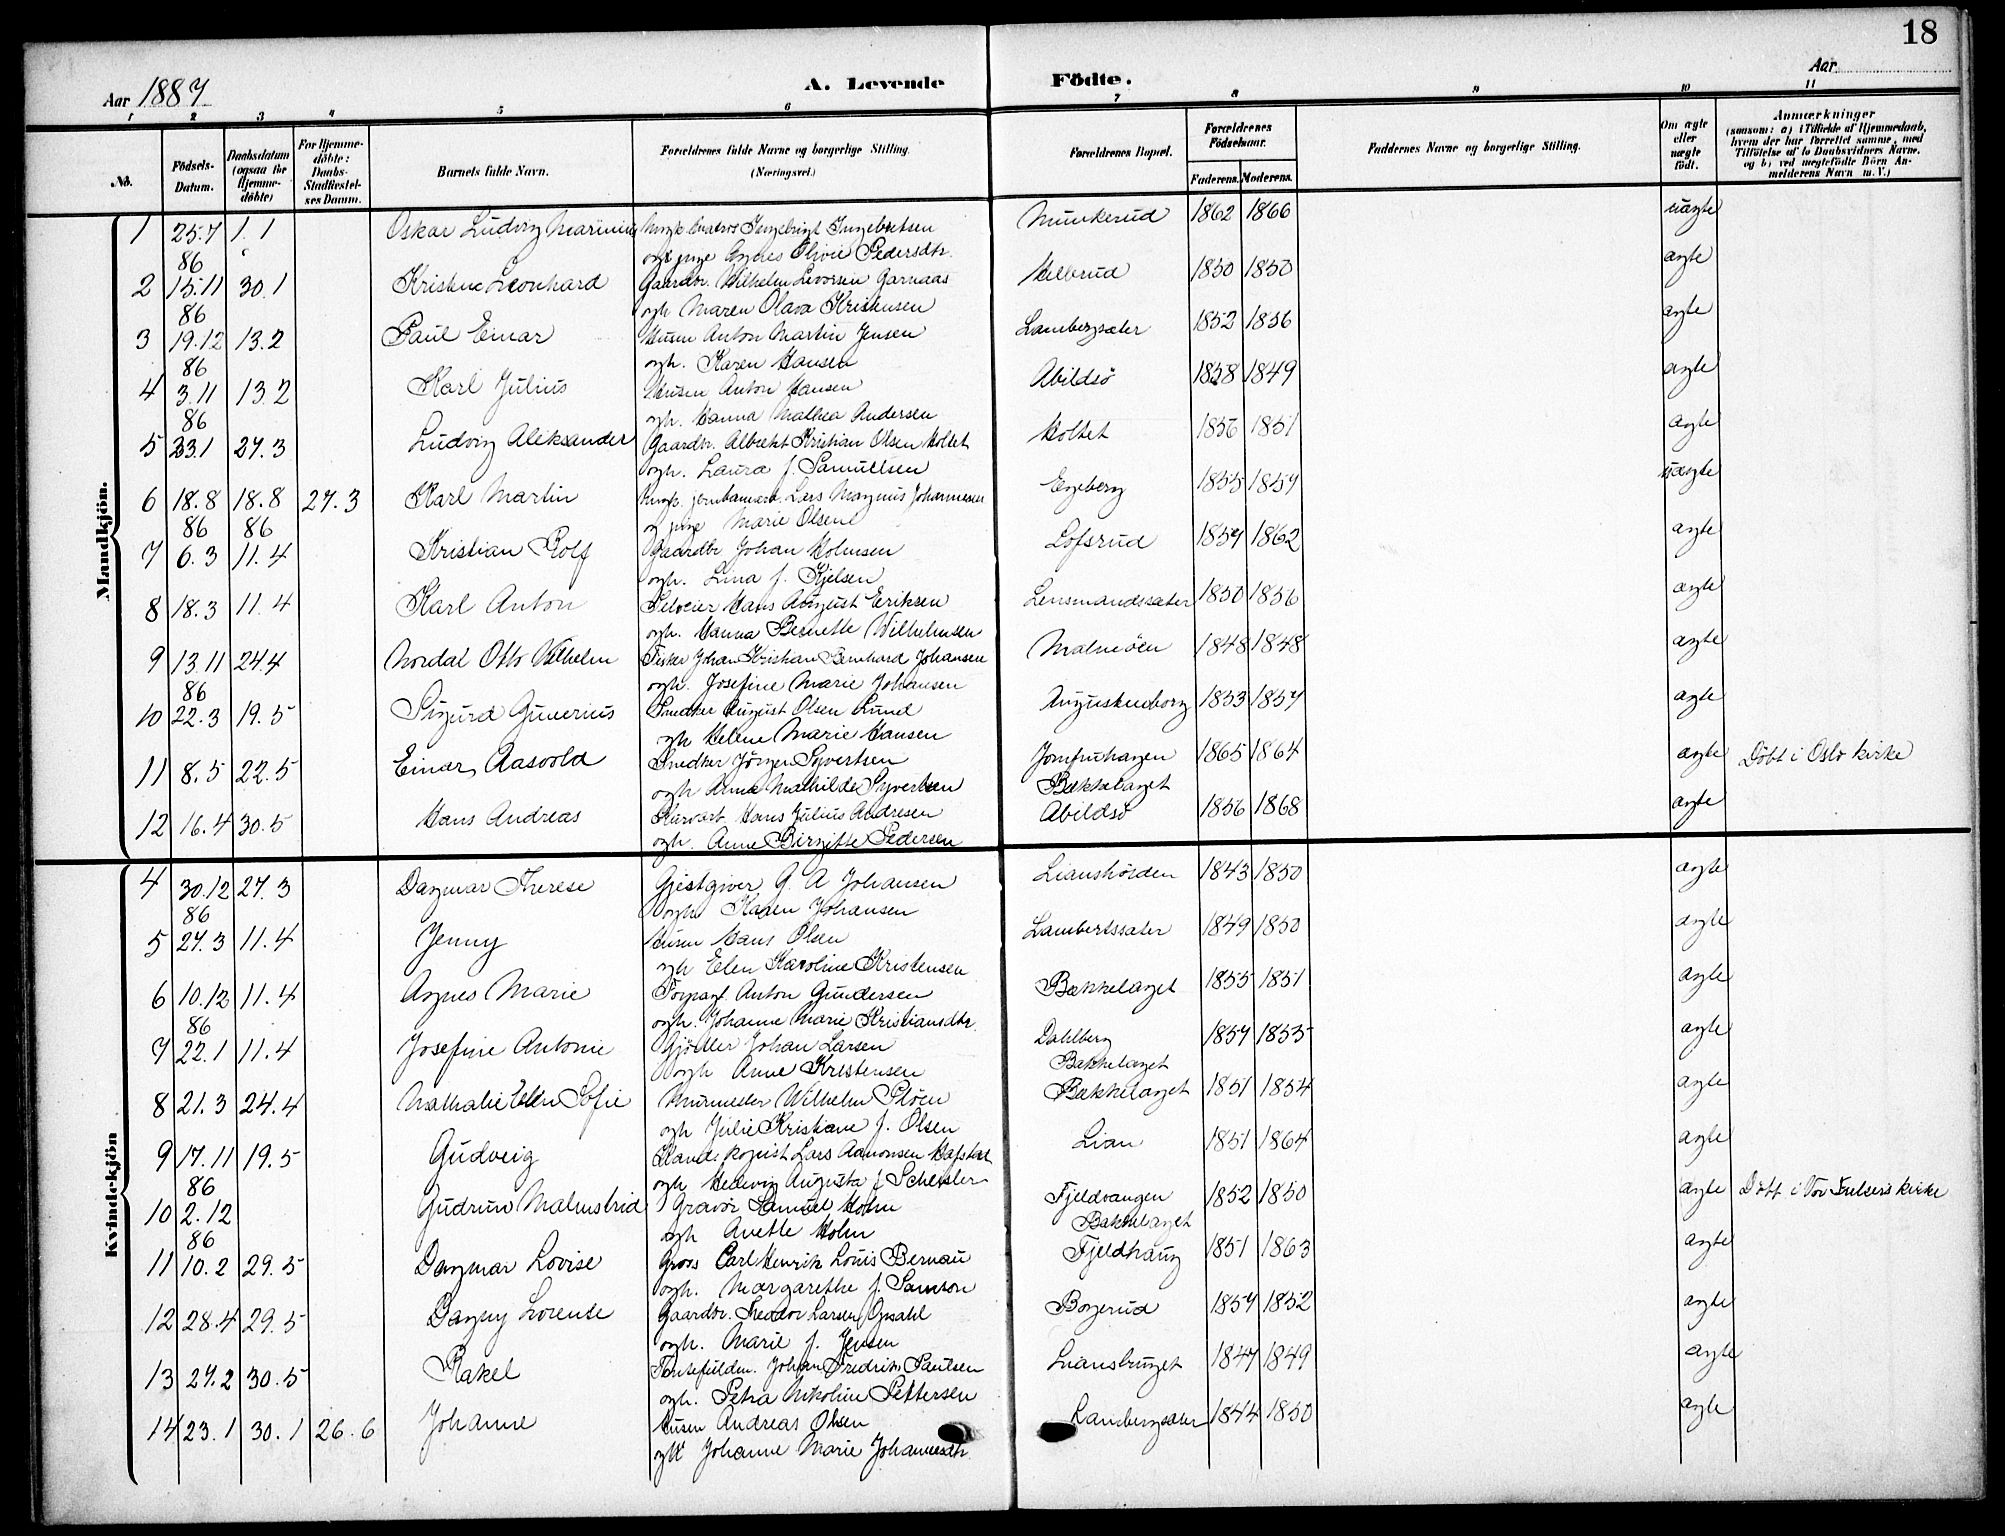 18
Aar 1887
A. Levende Födte.
Aar
1 2 3 4 5 6 7 8 9 10 11
No.
Födsels-Datum.
Daabsdatum (ogsaa for Hjemme-döbte)
For Hjemme-döbte: Daabs-Stadfæstel-ses Datum.
Barnets fulde Navn.
Forældrenes fulde Navne og borgerlige Stilling (Næringsvei.)
Forældrenes Bopæl.
Forældrenes Födselsaar.
Faderens. Moderens.
Faddernes Navne og borgerlige Stilling.
Om ægte eller uægte födt.
Anmærkninger
(saasom: a) i Tilfælde af Hjemmedaab, hvem der har forrettet samme, med Tilföielse af to Daabsvidners Navne, og b) ved uegtefödte Börn An-melderens Navn m. V.)
Mandkjön.
1 25.7 86 1.1 Oskar Ludvig Ungk. Ingebrigt Ingebretsen Munkerud 1862 1866 uægte
og pige Agnes Olivie Pedersdtr.
2 15.11 86 30.1 Kristian Leonhard Gaardbr. Wilhelm Leversen Garnaas 1850 1850 ægte
ogh Maren Olava Kristensen
3 19.12 86 13.2 Paul Einar Husm Anton Martin Jensen Lambergsæter 1852 1856 ægte
ogh. Karen Hansen
4 3.11 86 13.2 Karl Julius Husm Anton Hansen Abildsö 1858 1849 ægte
ogh. Hanna Mathea Andersen
5 23.1 27.3 Ludvig Aleksander Gaardbr. Albrekt Kristian Olsen Holtet Holtet 1856 1851 ægte
ogh. Laura f. Samuelsen
6 18.8 86 18.8 86 27.3 Karl Martin Ungk. jernbanearb. Lars Magnus Johannesen Engeberg 1855 1857 uægte
og pige Marie Olsen
7 6.3 11.4 Kristian Rolf Gaardbr Johan Holmsen Lofsrud 1857 1862 ægte
ogh. Lina f. Kjelsen
8 18.3 11.4 Karl Anton Selveier Hans August Eriksen Lensmandssæter 1850 1856 ægte
ogh. Hanna Bernette Wilhelmsen
9 13.11 86 24.4 Nordal Otto Vilhelm Fisker Johan Kristian Bernhard Johansen Malmöen 1848 1848 ægte
ogh. Josefine Marie Johansen
10 22.3 19.5 Sigurd Gunerius Snedker August Olsen Lund Augustenborg 1853 1857 ægte
ogh Helene Marie Hansen
11 8.5 22.5 Einar Aasvold Snedker Jörgen Syvertsen Jomfruhagen Bækkelaget 1865 1864 ægte Döbt i Oslo kirke
ogh Anna Mathilde Syvertsen
12 16.4 30.5 Hans Andreas Hans Julius Andresen Abildsö 1856 1868 ægte
ogh. Anne Birgitte Pedersen
Kvindekjön
4 30.12 86 27.3 Dagmar Therese Gjestgiver G. A Johansen Lianshöiden 1843 1850 ægte
ogh Karen Johansen
5 27.3 11.4 Jenny Husm Hans Olsen Lambertssæter 1849 1850 ægte
ogh Elen Karoline Kristensen
6 10.12 86 11.4 Agnes Marie Forpagt Anton Gundersen Bækkelaget 1855 1851 ægte
ogh. Johanne Marie Kristiansdtr.
7 22.1 11.4 Josefine Antonie Gjörtler Johan Larsen Dahlberg Bækkelaget 1857 1855 ægte
ogh Anne Kristensen
8 21.3 24.4 Nathalie Elen Sofie Murmester Wilhelm Bækkelaget 1851 1854 ægte
ogh Julie Kristiane f. Olsen
9 17.11 86 19.5 Gudveig Lars Aamonsen Hafstad Lian 1851 1864 ægte
ogh Hedevig Augusta f Schesler
10 2.12 86 Gudrun Malmstrid Gravör Samuel Holm Fjeldvangen Bækkelaget 1852 1850 ægte Döbt i Vor Frelsers kirke
ogh Anette Holm
11 10.2 29.5 Dagmar Lovise Gross Carl Henrik Louis Bernau Fjeldhaug 1851 1863 ægte
ogh. Margarethe f. Samson
12 28.4 29.5 Dagny Lorense Gaardbr. Theodor Larsen Opsahl Bogerud 1857 1852 ægte
ogh. Marie f. Jensen
13 27.2 30.5 Rakel Johan Fredrik Paulsen Liansbruget 1847 1849 ægte
ogh. Petra Nikoline Pettersen
14 23.1 30.1 26.6 Johanne Husm Andreas Olsen Lambergsæter 1844 1850 ægte
ogh Johanne Marie Johannesdtr.